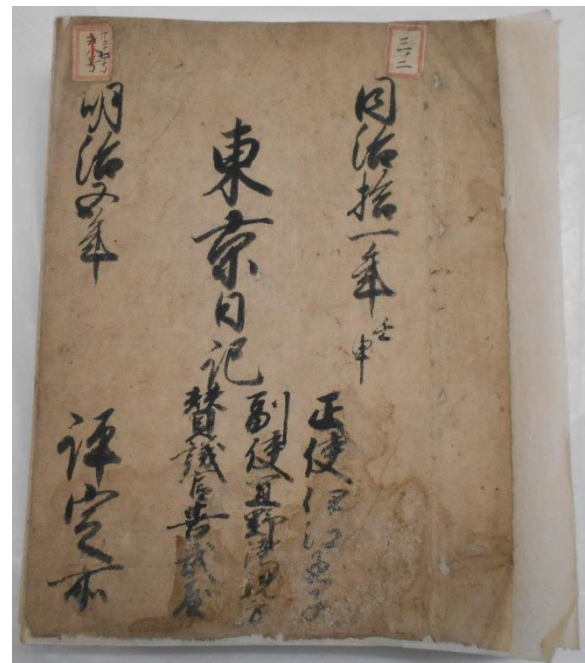 三ノ二
同治拾一年壬申
東京日記
正使伊江王子
副使宜野湾親方
賛議官喜屋武
明治五年
評定所